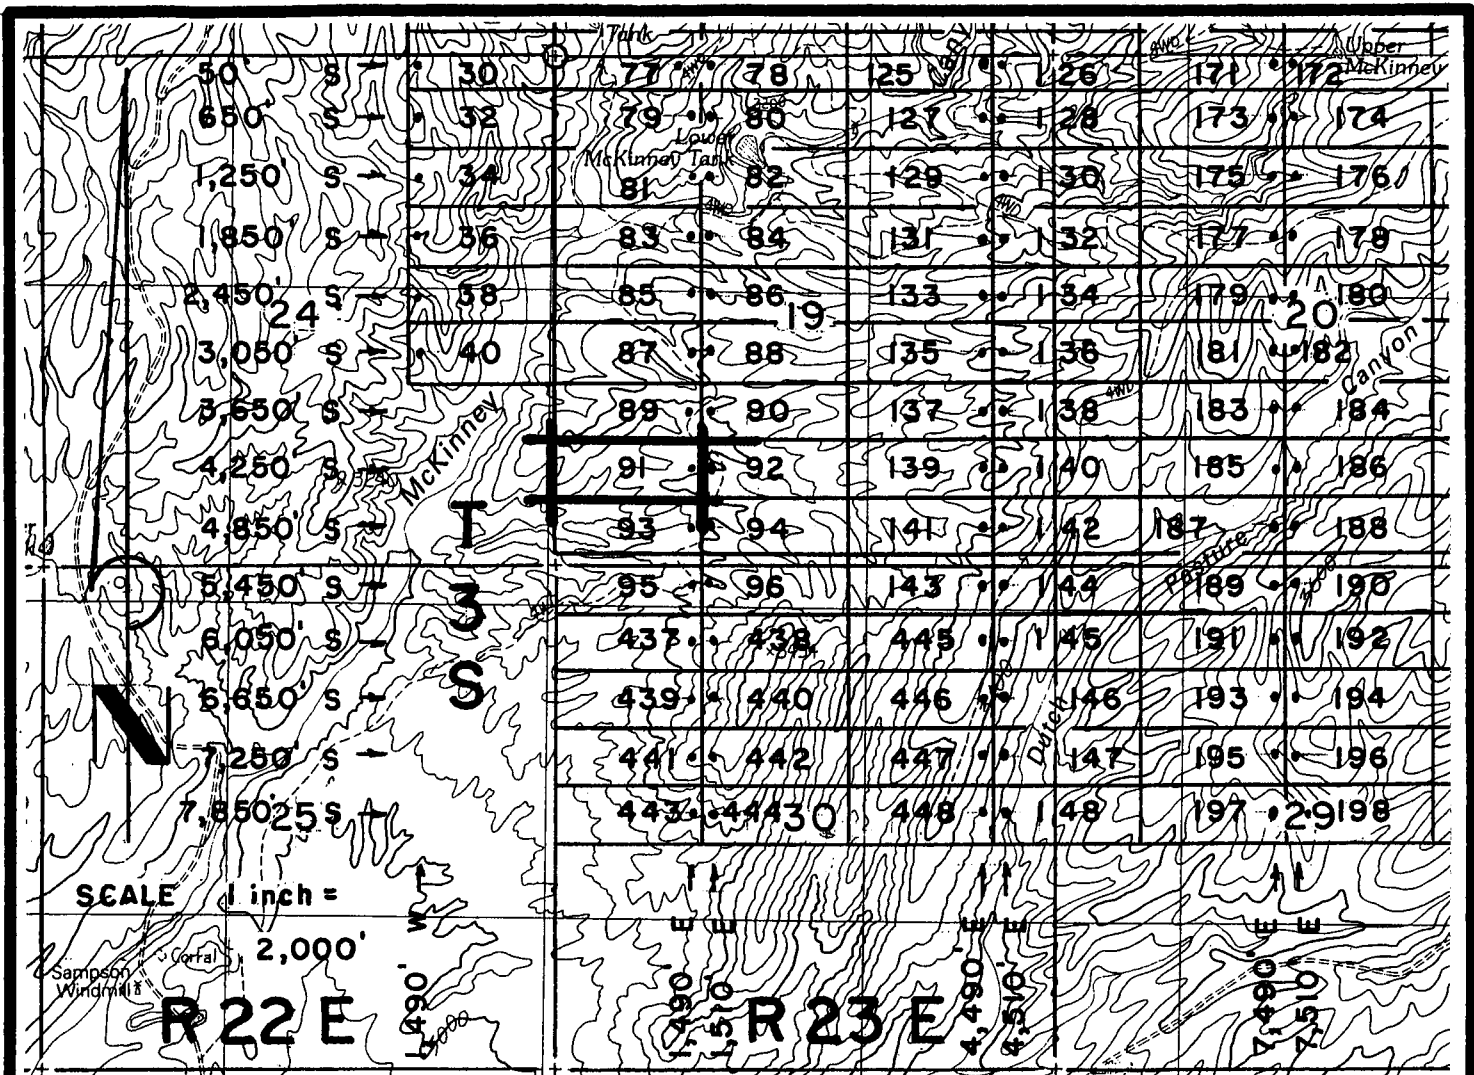 Tank
Upper
McKinney
4WD
4WD
50' S 30 77 78 125 126 171 172
3200
650' S 32 79 80 127 128 173 174
Lower
McKinney Tank
1,250' S 34 81 82 129 130 175 176
4WD
4WD
1,850' S 36 83 84 131 132 177 178
2,450' S 38 85 86 133 134 179 180
24 19 20
3,050' S 40 87 88 135 136 181 182
Canyon
4WD
3,650' S 89 90 137 138 183 184
McKinney
4,250' S 91 92 139 140 185 186
4,850' S 93 94 141 142 187 188
T
3
S
Pasture
5,450' S 95 96 143 144 189 190
6,050' S 437 438 445 145 191 192
6,650' S 439 440 446 146 193 194
Dutch
7,250' S 441 442 447 147 195 196
7,850' S 443 444 448 148 197 198
25 30 29
N
SCALE 1 inch =
2,000'
Corral
Sampson
Windmill
1,490' W
1,490' E
1,510' E
4,490' E
4,510' E
7,490' E
7,510' E
R 22 E R 23 E
4000